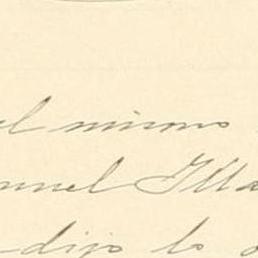 el mismo
nuel
dijo lo